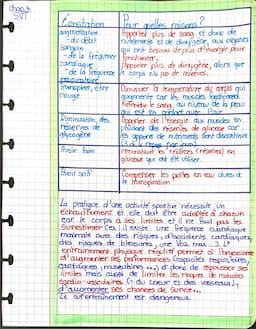 chap 3
SVT
Constatation
Pour quelles raisons ?
augmentation
- du débit
sanguin
- de la fréquence
cardiaque
- de la fréquence
respiratoire
Apporter plus de sang et donc de
nutriments et de dioxygène, aux organes
qui ont besoin de plus d'énergie pour
fonctionner.
Apporter plus de dioxygène, alors que
le corps n'a pas de réserves.
transpirer, être
rouge
Diminuer la température du corps qui
augmente car les muscles
Refroidir le sang au niveau de la peau
qui est en contact avec
Diminution des
réserves de
glycogène
Apporter de l'énergie aux muscles en
utilisant des réserves de glucose car
les apports de nutriments sont
Avoir faim
reconstituer les réserves
glucose qui ont été utilisés.
Avoir soif
Compenser les pertes en eau dues à
la transpiration
La pratique d'une activité sportive nécessite un
échauffement et elle doit être adaptée à chacun
car le corps a ses limites et il ne faut pas les
surestimer
il existe une fréquence cardiaque
maximale avec des risques d'accidents cardiaques,
des risques de blessures, une VO2 max
entraînement physique régulier permet à l'organisme
d'augmenter ses performances (capacités respiratoires,
cardiaques, musculaires ...), et donc de repousser ses
limites mais aussi de limiter les risques de maladies
cardio-vasculaires (= du coeur et des vaisseaux),
d'augmenter ses chances de survie...
Le surentraînement est dangereux